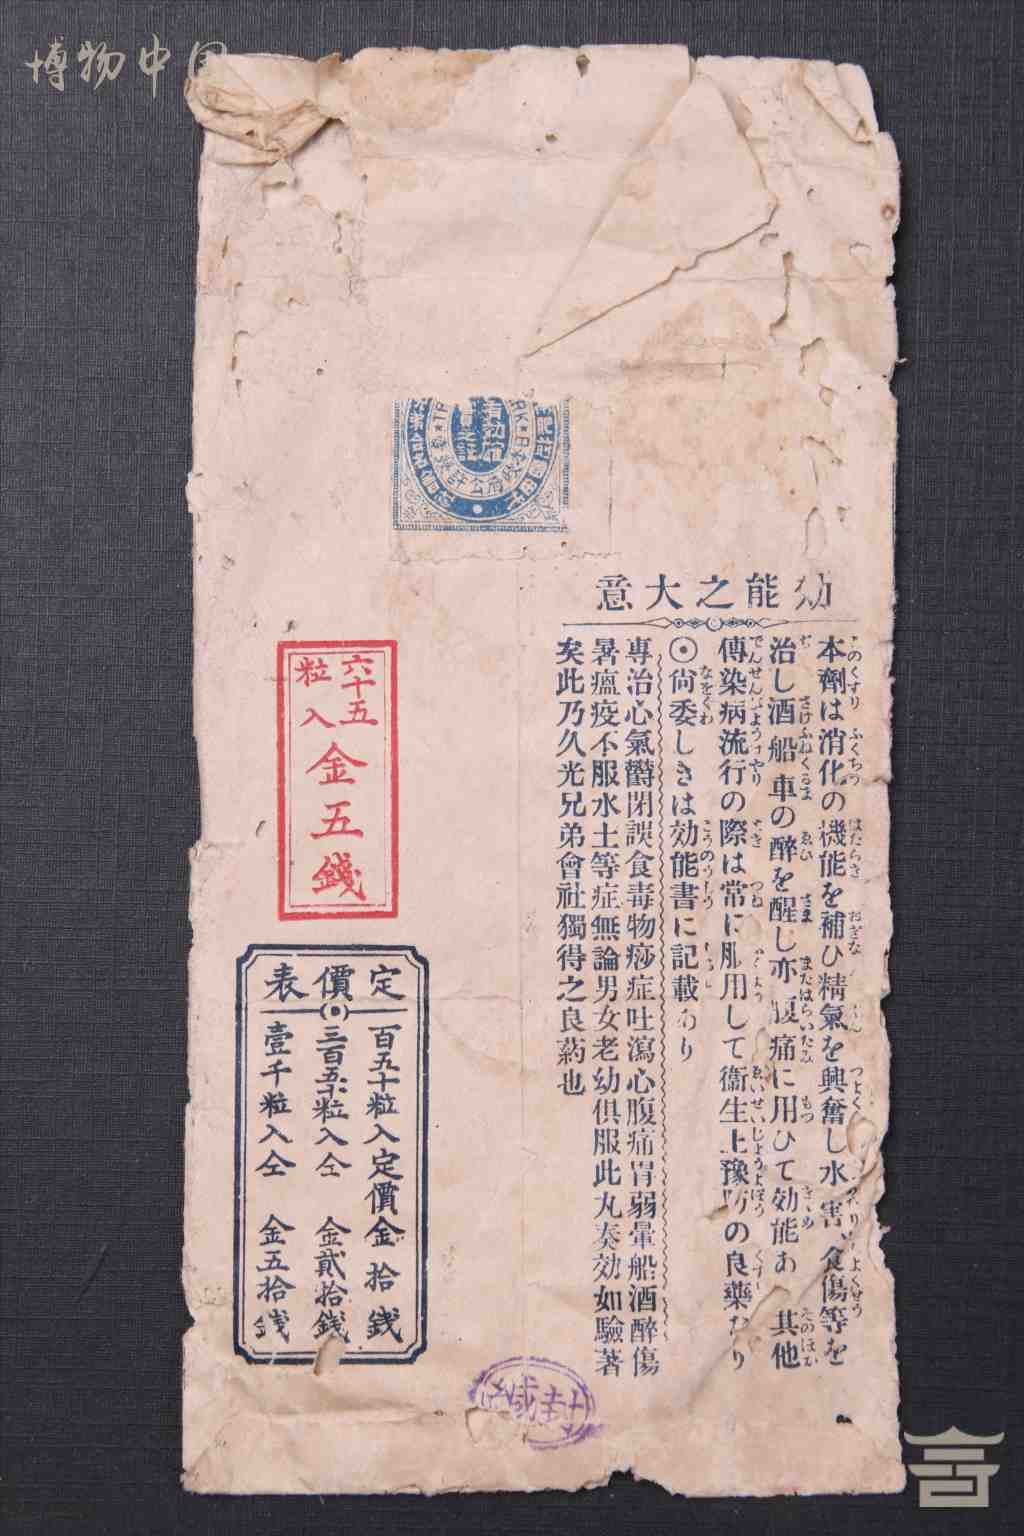 博物中国
有功確
實之証
政府公許
効能之大意
本劑は消化の機能を補ひ精氣を興奮し水害、食傷等を
治し酒船車の醉を醒し亦腹痛に用ひて効能あ 其他
傳染病流行の際は常に服用して衞生上豫防の良藥なり
⦿尙委しきは効能書に記載あり
專治心氣鬱閉誤食毒物痧症吐瀉心腹痛胃弱暈船酒醉傷
暑瘟疫不服水土等症無論男女老幼俱服此丸奏効如驗著
矣此乃久光兄弟會社獨得之良葯也
六十五
粒入
金五錢
定價表
百五十粒入定價金拾錢
三百五十粒入仝 金貳拾錢
壹千粒入仝 金五拾錢